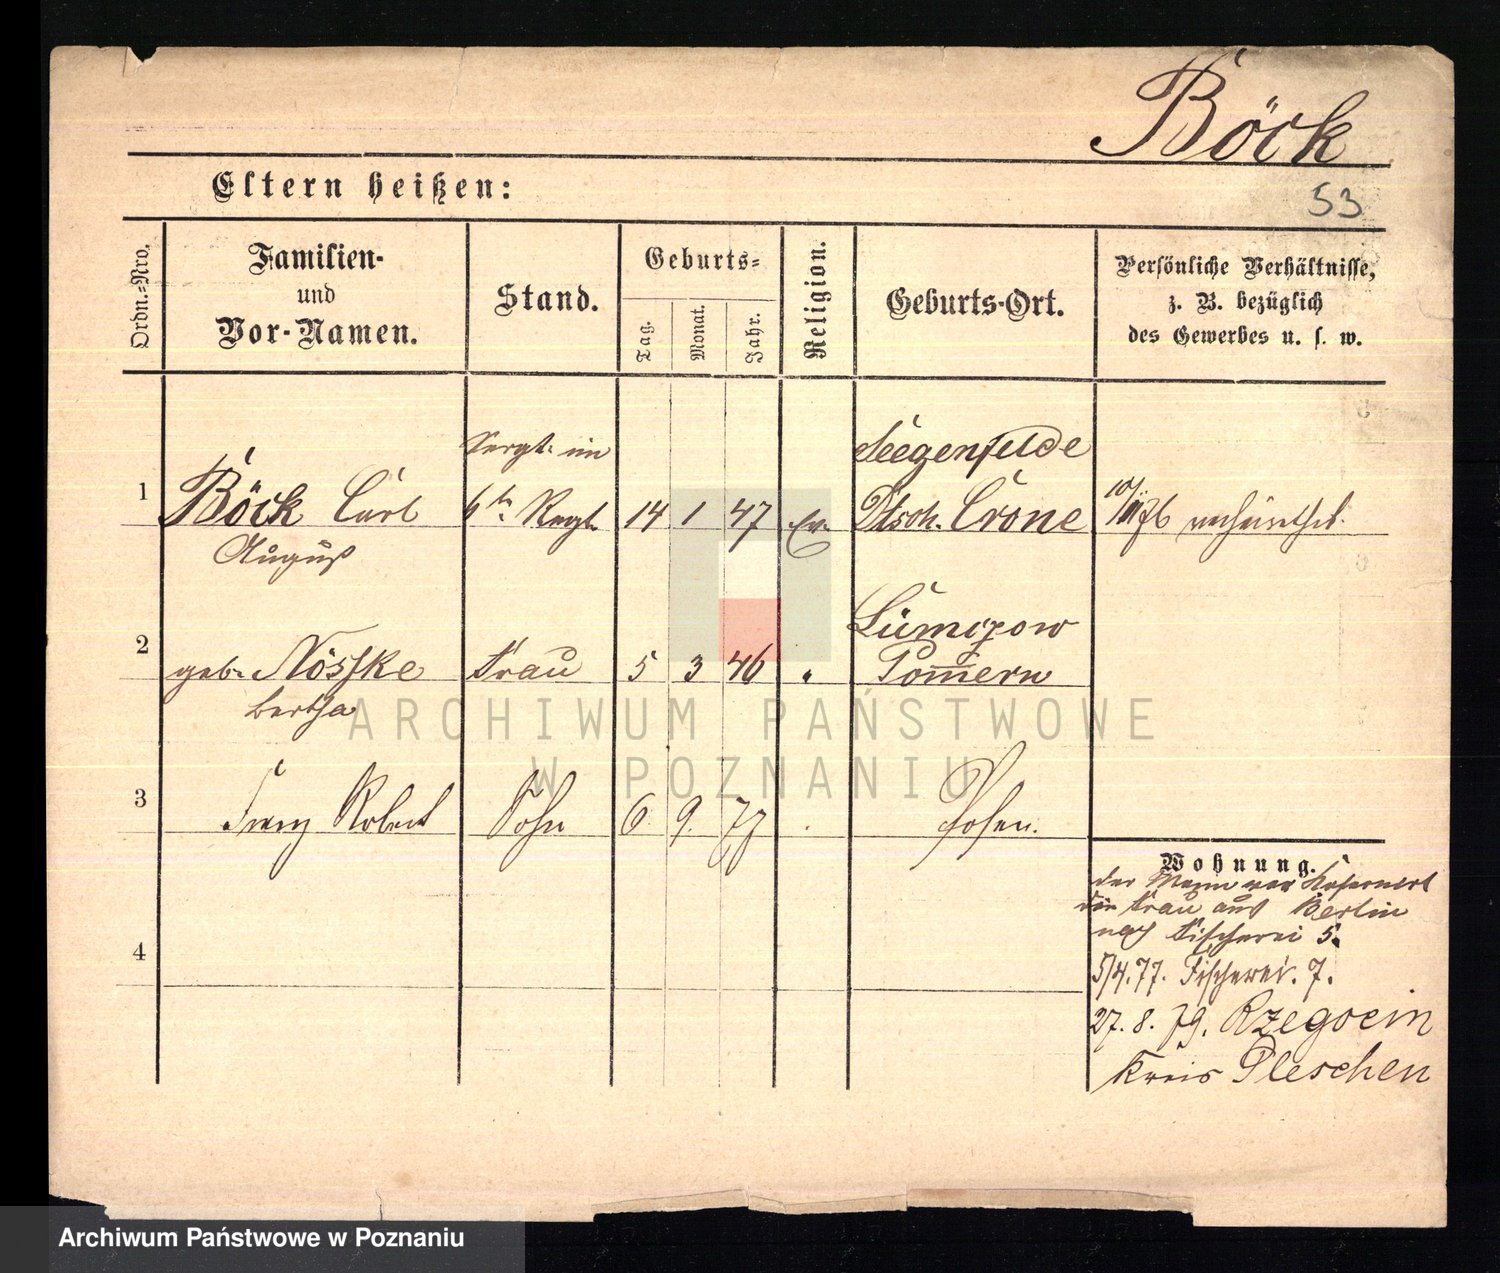 Böck
Eltern heißen:
53
Ordn.-Nro.
Familien-
und
Vor-Namen.
Stand.
Geburts-
Tag.
Monat.
Jahr.
Religion.
Geburts-Ort.
Persönliche Verhältnisse,
z. B. bezüglich
des Gewerbes u. s. w.
1
Böck Carl
August
Sergt. im
6ten Regt.
14 1 47
Ev.
Seegenfelde
Dtsch. Crone
verheirathet.
2
geb. Nöske
Bertha
Frau
5 3 46
"
Pommern
3
Franz Robert
Sohn
6. 9. 77
Posen.
4
Wohnung.
der Mann war Kasernirt
die Frau aus Berlin
nach Fischerei 5.
5/4.77. Fischerei. 7.
27. 8. 79. Rzegocin
Kreis Pleschen
ARCHIWUM PAŃSTWOWE
W POZNANIU
Archiwum Państwowe w Poznaniu